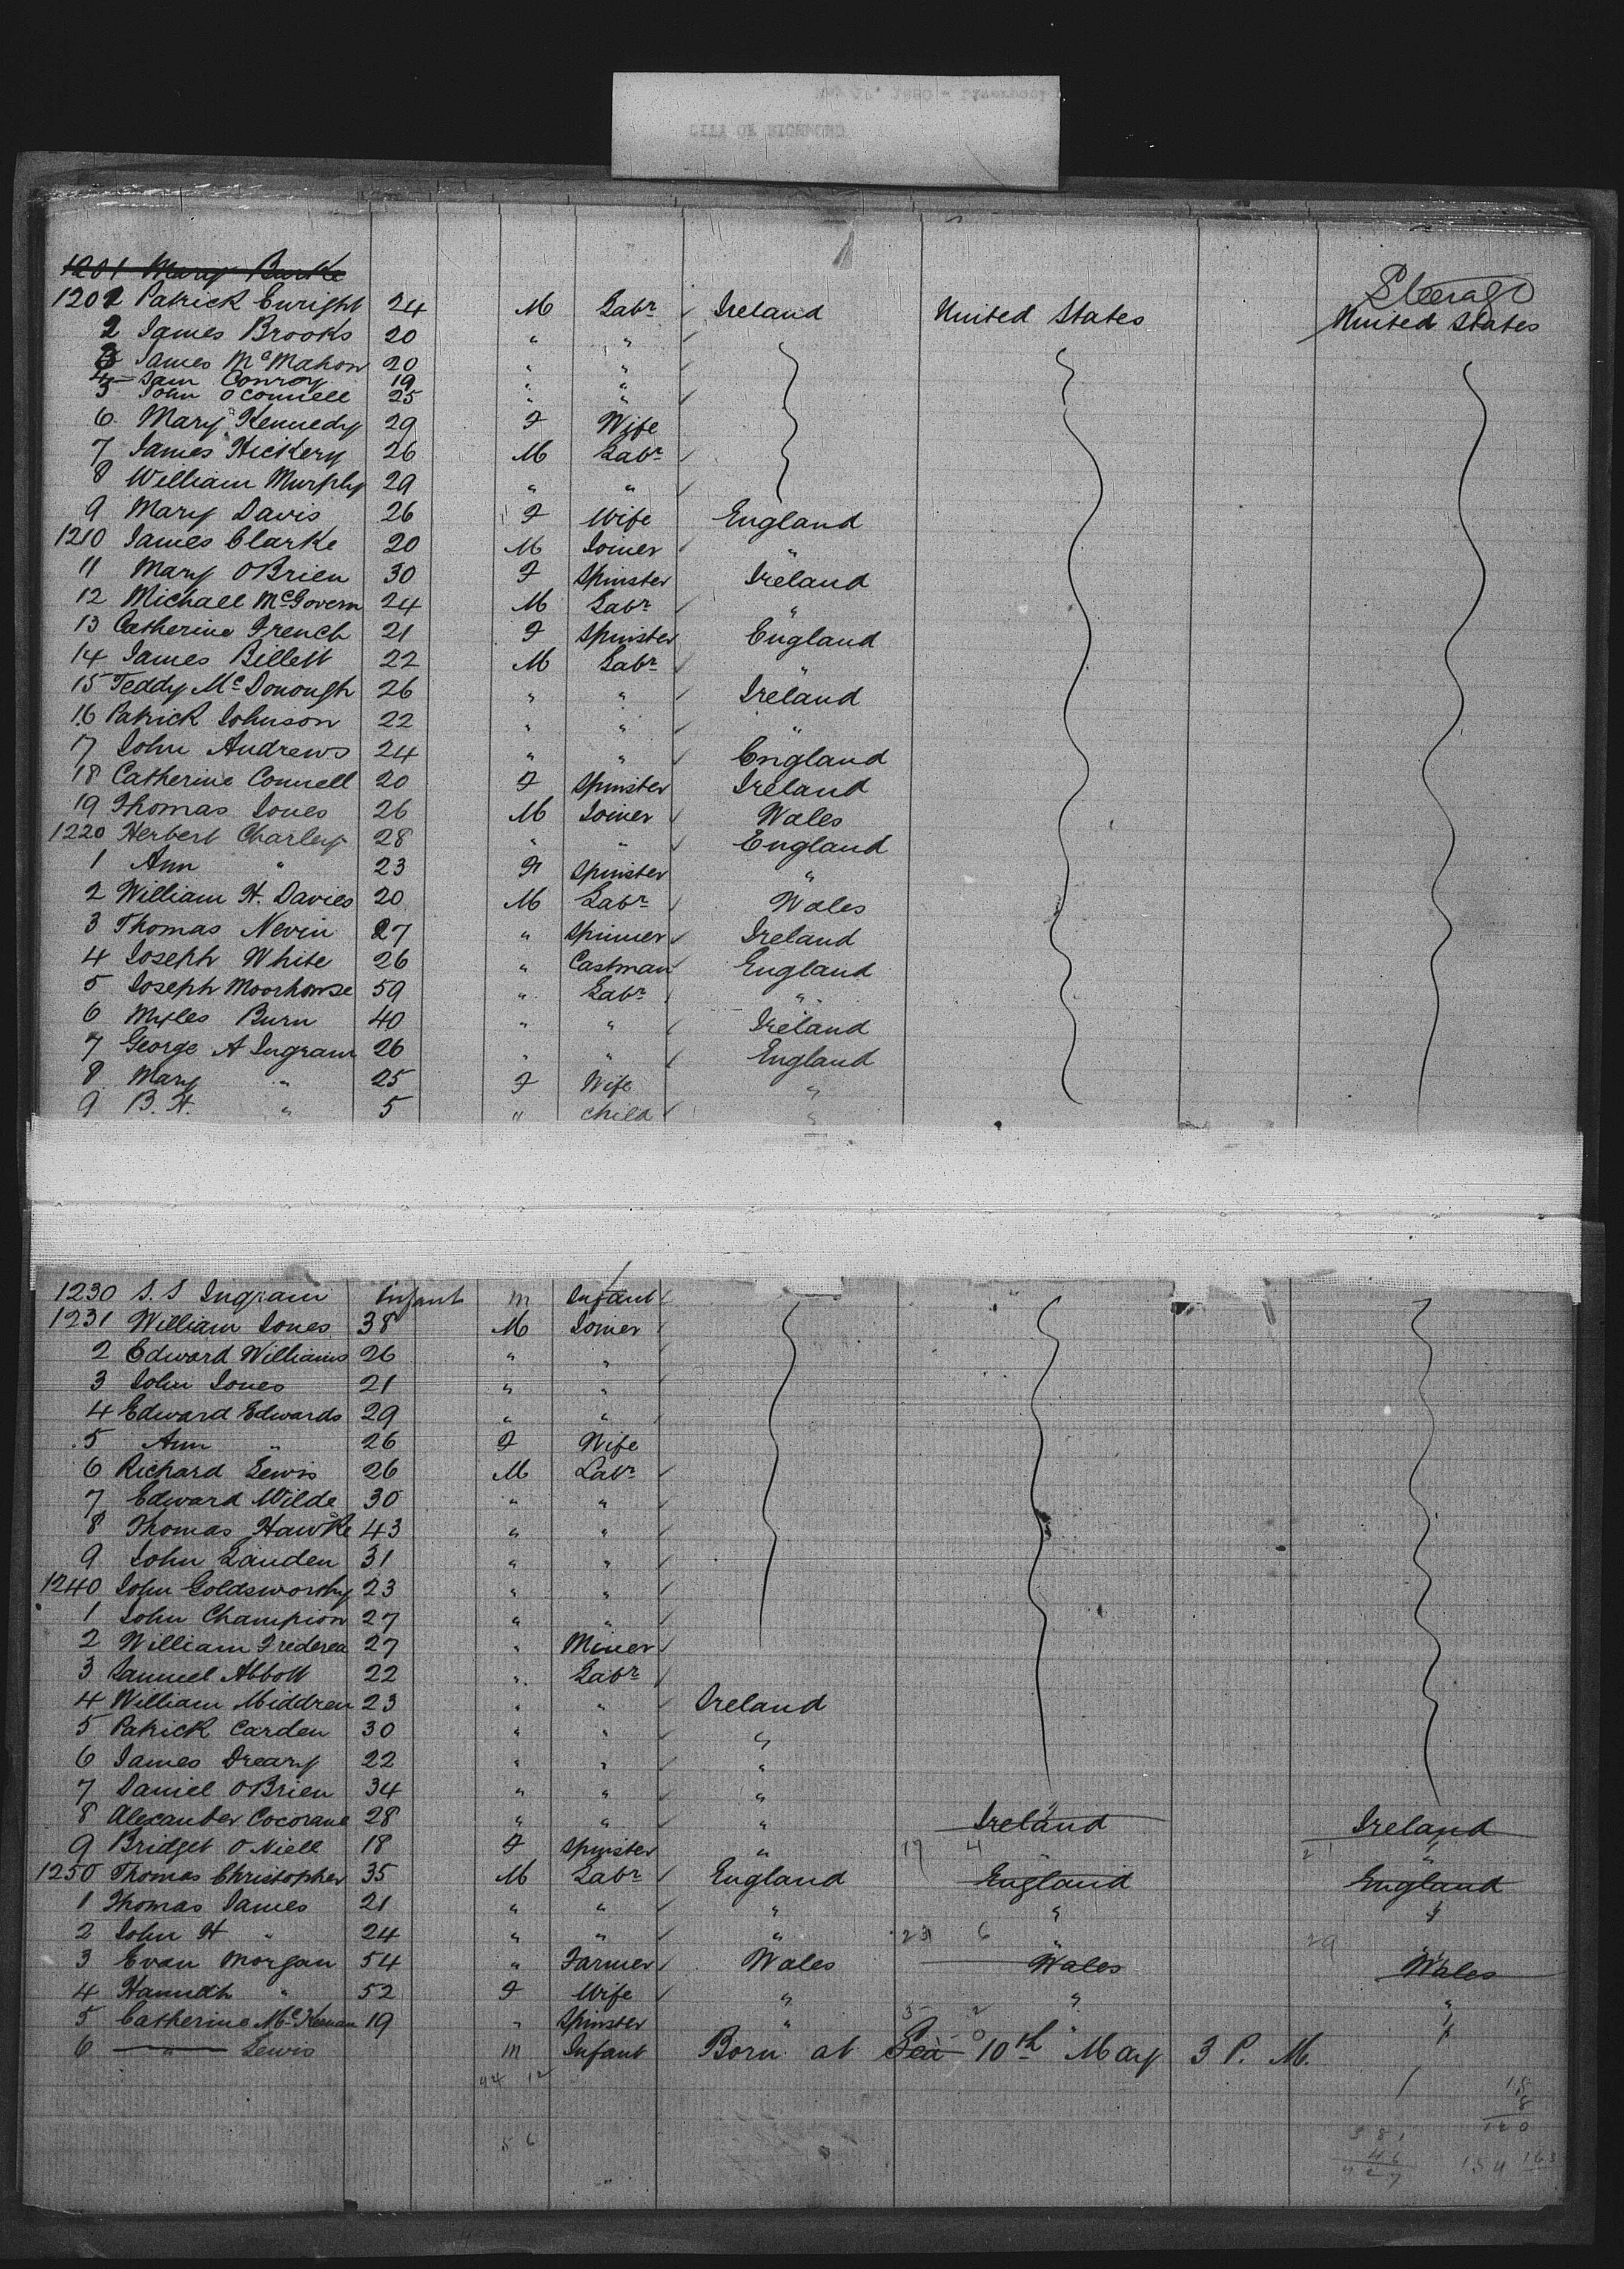 CITY OF RICHMOND
1201 Mary Burke
Steerage
1201 Patrick Enright 24 M Labr Ireland United States United States
2 James Brooks 20 " "
3 James McMahon 20 " "
4 Sam Conroy 19 " "
5 John O'Connell 25 " "
6 Mary Kennedy 29 F Wife
7 James Hickery 26 M Labr
8 William Murphy 29 " "
9 Mary Davis 26 F Wife England
1210 James Clarke 20 M Joiner "
11 Mary OBrien 30 F Spinster Ireland
12 Michael McGovern 24 M Labr "
13 Catherine French 21 F Spinster England
14 James Billett 22 M Labr "
15 Teddy McDonough 26 " " Ireland
16 Patrick Johnson 22 " " "
17 John Andrews 24 " " England
18 Catherine Connell 20 F Spinster Ireland
19 Thomas Jones 26 M Joiner Wales
1220 Herbert Charley 28 " " England
1 Ann " 23 F Spinster "
2 William H. Davies 20 M Labr Wales
3 Thomas Nevin 27 " Spinner Ireland
4 Joseph White 26 " Castman England
5 Joseph Moorhouse 59 " Labr "
6 Myles Burn 40 " " Ireland
7 George A Ingram 26 " " England
8 Mary " 25 F Wife "
9 B. H. " 5 " Child "
1230 S. S Ingram Infant m Infant
1231 William Jones 38 M Joiner
2 Edward Williams 26 " "
3 John Jones 21 " "
4 Edward Edwards 29 " "
5 Ann " 26 F Wife
6 Richard Lewis 26 M Labr
7 Edward Wilde 30 " "
8 Thomas Hawke 43 " "
9 John Landen 31 " "
1240 John Goldsworthy 23 " "
1 John Champion 27 " "
2 William Frederea 27 " Miner
3 Samuel Abbott 22 " Labr
4 William Middren 23 " " Ireland
5 Patrick Carden 30 " " "
6 James Dreary 22 " " "
7 Daniel OBrien 34 " " "
8 Alexander Cocorane 28 " " " Ireland Ireland
9 Bridget O Niell 18 F Spinster " " "
1250 Thomas Christopher 35 M Labr England England England
1 Thomas James 21 " " " " "
2 John H " 24 " " " " "
3 Evan Morgan 54 " Farmer Wales Wales Wales
4 Hannah " 52 F Wife " " "
5 Catherine McKernan 19 " Spinster " " "
6 " Lewis m Infant Born at Sea 10th May 3 P. M.